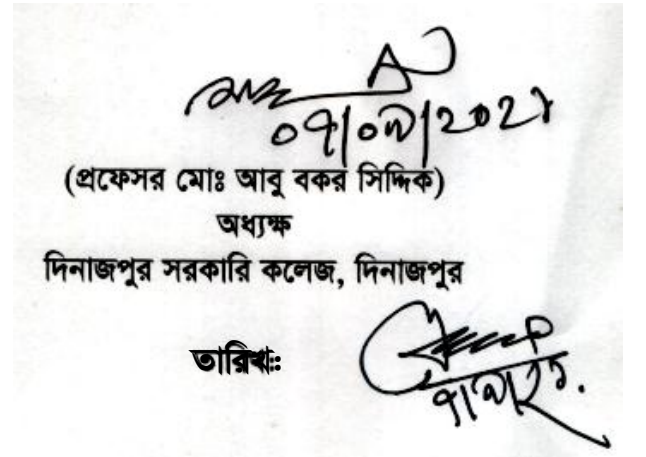 ০৭/০৯/২০২১
(প্রফেসর মোঃ আবু বকর সিদ্দিক)
অধ্যক্ষ
দিনাজপুর সরকারি কলেজ, দিনাজপুর
তারিখঃ
৭/৯/২১.